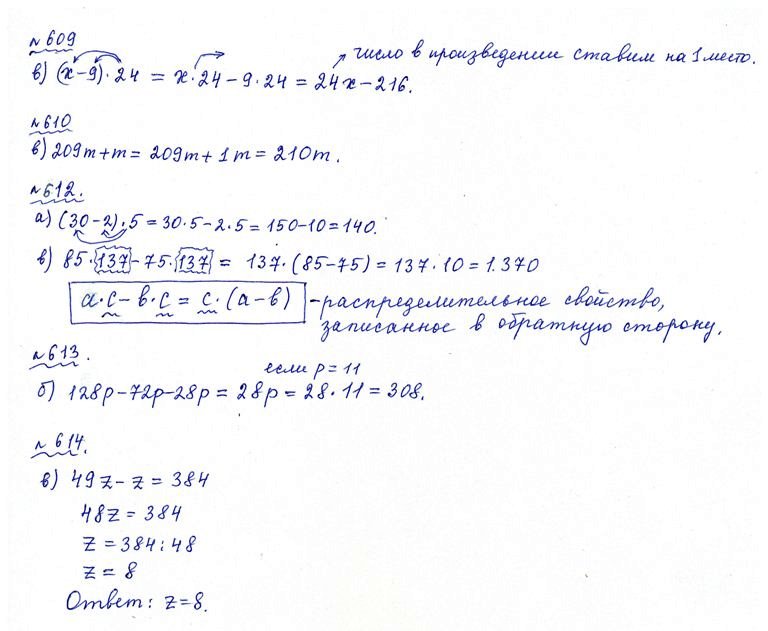 №609
число в произведении ставим на 1 место.
в) (x-9)·24 = x·24-9·24 = 24x-216.
№610
в) 209m+m = 209m+1m = 210m.
№612.
а) (30-2)·5 = 30·5-2·5 = 150-10 = 140.
в) 85·137-75·137 = 137·(85-75) = 137·10 = 1.370
a·c-b·c = c·(a-b) - распределительное свойство,
записанное в обратную сторону.
№613.
если p = 11
б) 128p-72p-28p = 28p = 28·11 = 308.
№614.
в) 49z-z = 384
48z = 384
z = 384:48
z = 8
Ответ: z=8.